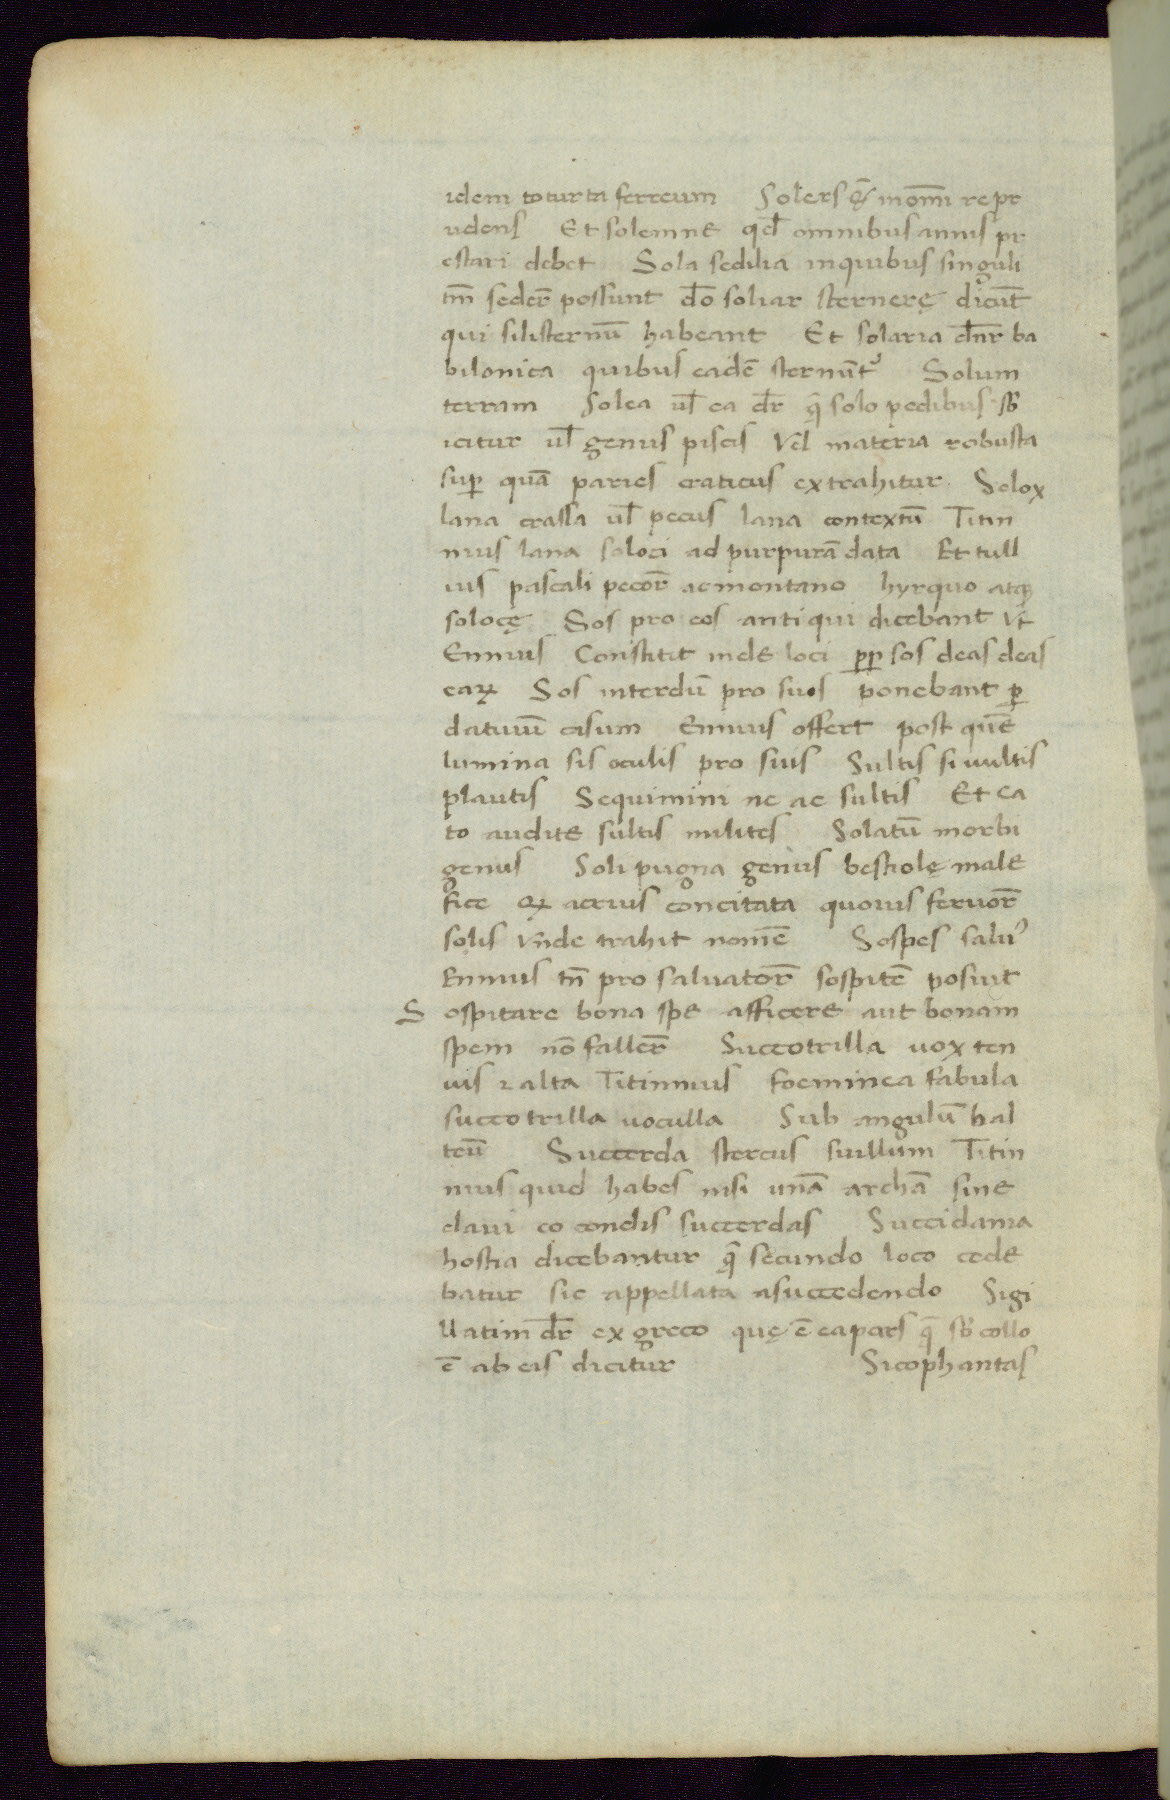 idem totum ta ferreum Solers ē in om̄i re pr
udens Et solemne qd̄ omnibus annis pr
estari debet Sola sedilia inquibus singuli
tm̄ sedēr possunt dō soliar sternerę dicūt
qui silisternū habeant Et solaria dn̄r ba
bilonica quibus eadē sternūt᷑ Solum
terram Solea ul̄ ea dr̄ q̄ solo pedibus sb̄
icitur ul̄ genus piscis Vel materia robusta
suꝑ quā paries craticus extrahitur Solox
lana crassa ul̄ pecus lana contextū Titin
nius lana soloci ad purpurā data Et tull
ius pascali pecor̄ ac montano hyrquo atqꝫ
solocę Sos pro eos antiqui dicebant Vt
Ennius Constitit inde loci ꝓp sos deas deas
eaꝝ Sos interdū pro suos ponebant ꝑ
datiuū casum Ennius offert post quē
lumina sis oculis pro suis Sultis si uultis
plautis Sequimini ne ac sultis Et ca
to audite sultis milites Solatū morbi
genus Soli pugna genus bestiolę male
fice qꝝ acrius concitata quouis feruor̄
solis Vn̄de trahit nomē Sospes saluꝰ
Ennius tn̄ pro saluator̄ sospitē posuit
S ospitare bona spe afficere aut bonam
spem nō faller̄ Succotrilla uox ten
uis ⁊ alta Titinnius foeminea fabula
succotrilla uocula Sub angulū bal
teū Succerda stercus suillum Titin
nius quid habes nisi unā archā sine
claui eo condis succerdas Succidania
hostia dicebantur q̄ secundo loco cede
batur sic appellata asuccedendo Sigi
llatim dr̄ ex greco quę ē ea pars q̄ sb̄ collo
ē ab eis dicitur Sicophantas